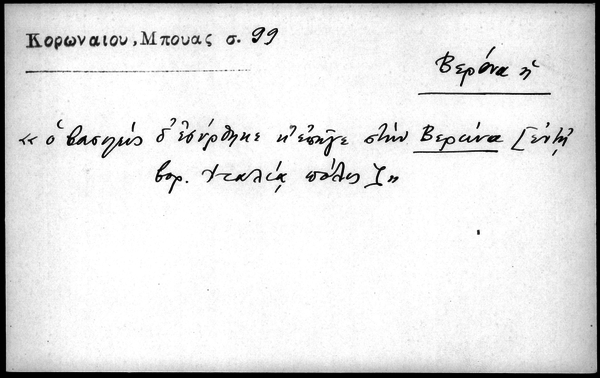 Κορωναιου, Μπουας σ. 99
Βερόνα ἡ
«ὁ βασιληὸς δ' ἐσύρθηκε κ' ἐπῆγε στὴν Βερώνα [ἐν τῇ
βορ. Ἰταλίᾳ πόλις]»